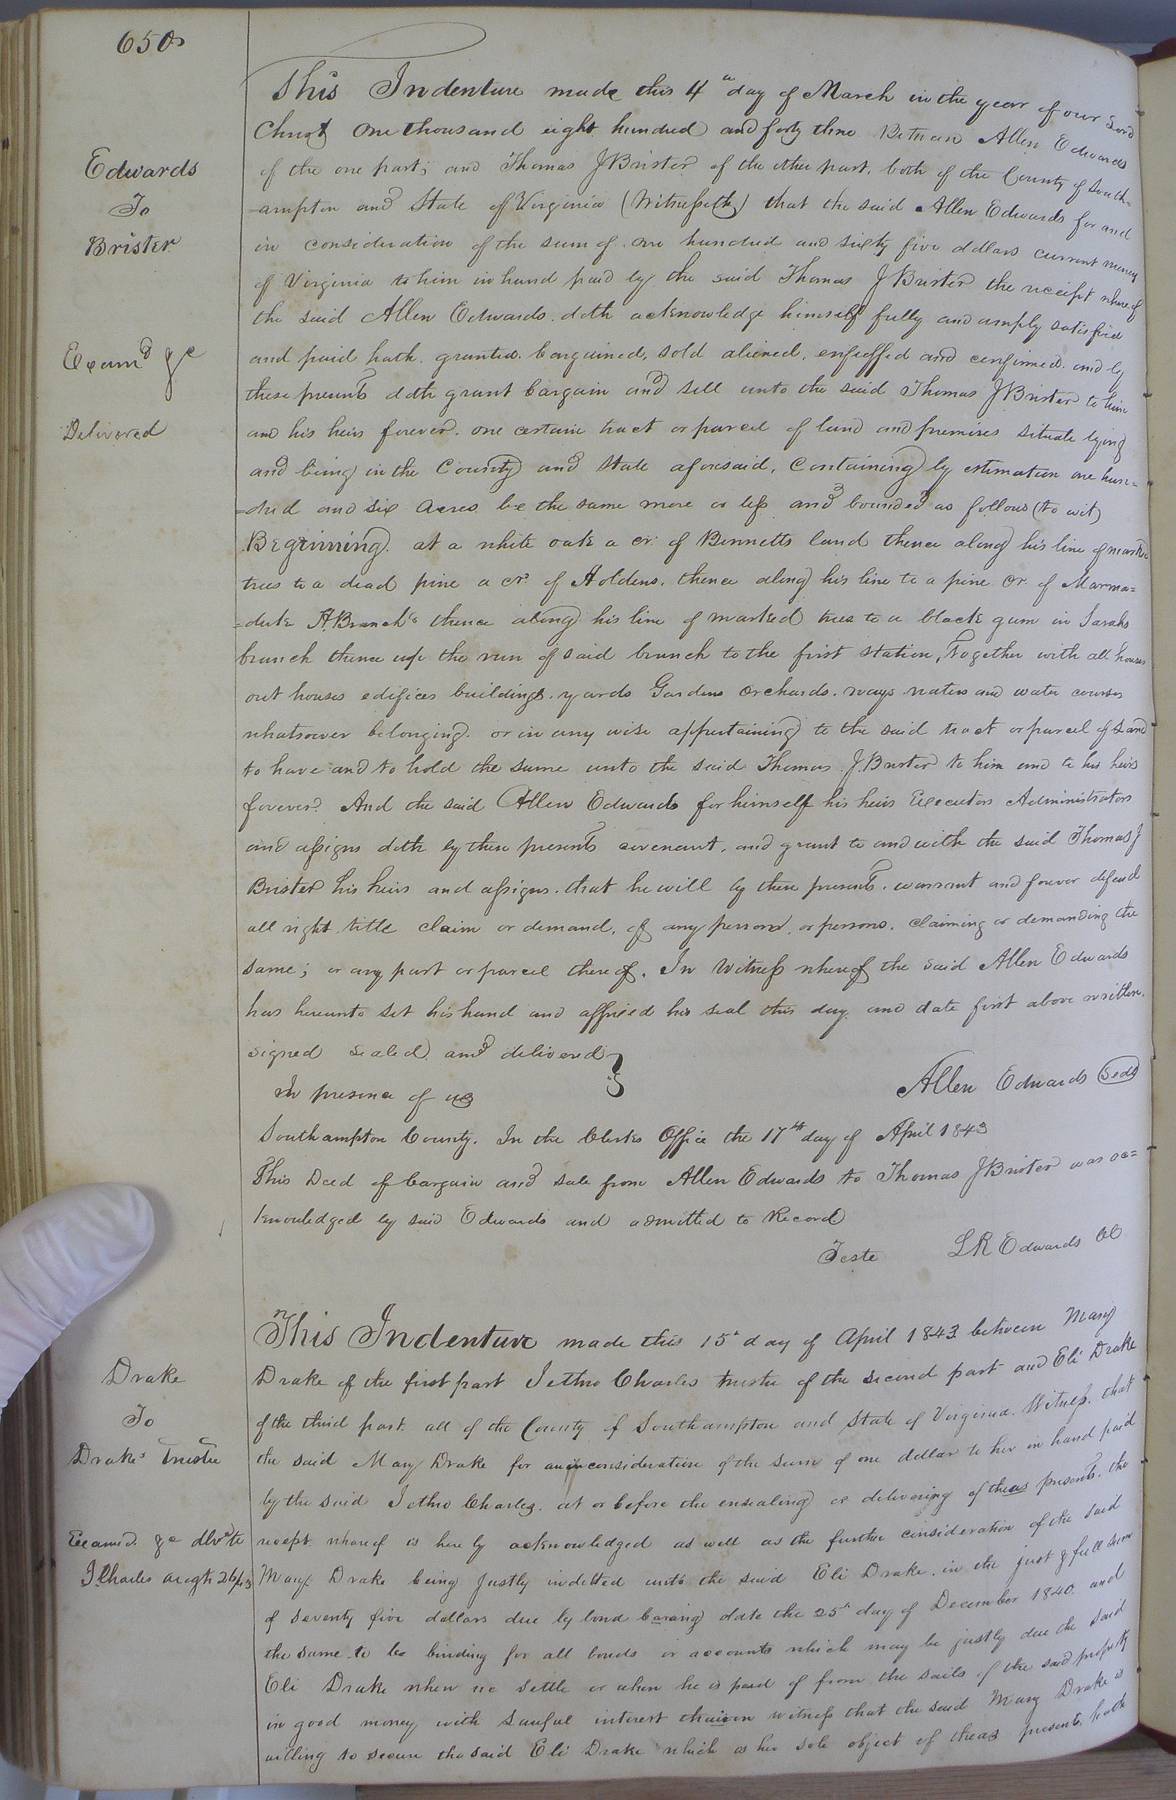 650
Edwards
To
Brister
Examd &c
Delivered
This Indenture made this 4th day of March in the year of our Lord
Christ One thousand eight hundred and forty three Between Allen Edwards
of the one part; and Thomas J Brister of the other part, both of the County of South-
-ampton and State of Virginia (Witnesseth) that the said Allen Edwards for and
in consideration of the sum of one hundred and sixty five dollars current money
of Virginia to him in hand paid by the said Thomas J Brister the receipt whereof
the said Allen Edwards doth acknowledge himself fully and amply satisfied
and paid hath granted, bargained, sold aliened, enfeoffed and confirmed and by
these presents doth grant bargain and sell unto the said Thomas J Brister to him
and his heirs forever. one certain tract or parcel of land and premises situate lying
and being in the County and State aforesaid, Containing by estimation one hun=
=dred and six acres be the same more or less and bounded as follows (to wit)
Beginning at a white oak a cr. of Bennetts land thence along his line of marked
trees to a dead pine a cr. of Holdens, thence along his line to a pine cr. of Marma=
=duke A. Branch's thence along his line of marked trees to a black gum in Sarahs
branch thence up the run of said branch to the first station, Together with all houses
out houses edifices buildings, yards Gardens Orchards, ways waters and water courses
whatsoever belonging or in any wise appertaining to the said tract or parcel of Land
to have and to hold the same unto the said Thomas J. Brister to him and to his heirs
forever. And the said Allen Edwards for himself his heirs Executors Administrators
and assigns doth by these presents covenant, and grant to and with the said Thomas J
Brister his heirs and assigns that he will by these presents warrant and forever defend
all right title claim or demand, of any person or persons, claiming or demanding the
same; or any part or parcel thereof. In Witness whereof the said Allen Edwards
has hereunto set his hand and affixed his seal this day and date first above written.
signed sealed and delivered
In presence of us
Allen Edwards Seal
Southampton County. In the Clerks Office the 17th day of April 1843
This Deed of bargain and sale from Allen Edwards to Thomas J Brister was ac=
knowledged by said Edwards and admitted to Record
Teste L R Edwards CC
Drake
To
Drakes Trustee
Examd. &c dlvd to
J. Charles
This Indenture made this 15th day of April 1843 between Mary
Drake of the first part Jethro Charles trustee of the second part and Eli Drake
of the third part all of the County of Southampton and State of Virginia. Witness, that
the said Mary Drake for an in consideration of the sum of one dollar to her in hand paid
by the said Jethro Charles, at or before the ensealing or delivering of theas presents, the
receipt whareof is here by acknowledged as well as the further consideration of the said
Mary Drake being Justly indetted unto the said Eli Drake in the just & full sum
of seventy five dollars due by bond baraing date the 25th day of December 1840 and
the same to be binding for all bonds or accounts which may be justly due the said
Eli Drake when we settle or when he is paid of from the sails of the said property
in good money with Lawful interest thairon witness that the said Mary Drake is
willing to secure the said Eli Drake which is her sole object of theas presents, hath